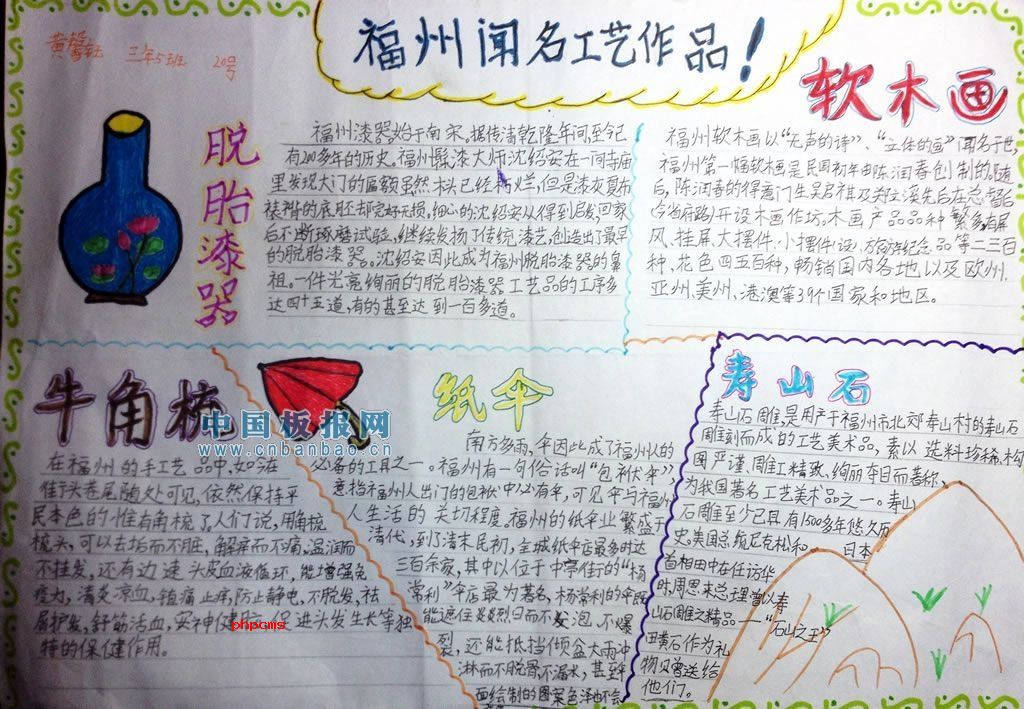 黄馨钰 三年5班 20号
福州闻名工艺作品!
脱胎漆器
福州漆器始于南宋。据传清乾隆年间,至今已
有200多年的历史。福州髹漆大师沈绍安在一间寺庙
里发现大门的匾额虽然木头已经朽烂,但是漆灰夏布
裱褙的底胚却完好无损。细心的沈绍安从得到启发,回家
后不断琢磨试验,继续发扬了传统漆艺,创造出了最早
的脱胎漆器。沈绍安因此成为福州脱胎漆器的鼻
祖。一件光亮绚丽的脱胎漆器工艺品的工序多
达四十五道,有的甚至达到一百多道。
软木画
福州软木画以“无声的诗”、“立体的画”闻名于世,
福州第一幅软木画是民国初年由陈润春创制的。随
后,陈润春的得意门生吴启棋及郑立溪先后在总督台
(今省府路)开设木画作坊。木画产品品种繁多,有屏
风、挂屏、大摆件、小摆件设、旅游纪念品等二三百
种、花色四五百种,畅销国内各地以及欧州、
亚州、美州、港澳等39个国家和地区。
牛角梳
在福州的手工艺品中,如今在
街头巷尾随处可见,依然保持平
民本色的惟有角梳了。人们说,用角梳
梳头,可以去垢而不脏,解痒而不痛,温润而
不挂发,还有边速头皮血液循环,能增强免
疫力,清炎凉血,镇痛止痒,防止静电,不脱发,祛
屑护发,舒筋活血,安神健脑,促进头发生长等独
特的保健作用。
纸伞
南方多雨,伞因此成了福州人的
必备的工具之一。福州有一句俗话叫“包袱伞”
意指福州人出门的包袱中必有伞,可见伞与福州
人生活的关切程度。福州的纸伞业繁盛于
清代,到了清末民初,全城纸伞店最多时达
三百余家,其中以位于中亭街的“杨
常利”伞店最为著名,杨常利的伞既
能遮住炎烈日而不发泡、不爆
裂,还能抵挡倾盆大雨冲
淋而不脱骨、不漏水,甚至伞
面绘制的图案色泽也不会
寿山石
寿山石雕,是用产于福州市北郊寿山村的寿山石
雕刻而成的工艺美术品,素以选料珍稀、构
图严谨、雕工精致、绚丽夺目而著称,
为我国著名工艺美术品之一。寿山
石雕至少已具有1500多年悠久历
史。美国总统尼克松和 日本
首相田中在任访华
时,周恩来总理曾以寿
山石雕之精品——“石山之王”
田黄石作为礼
物贝曾送给
他们。
中国板报网
www.cnbanbao.cn
phpcms